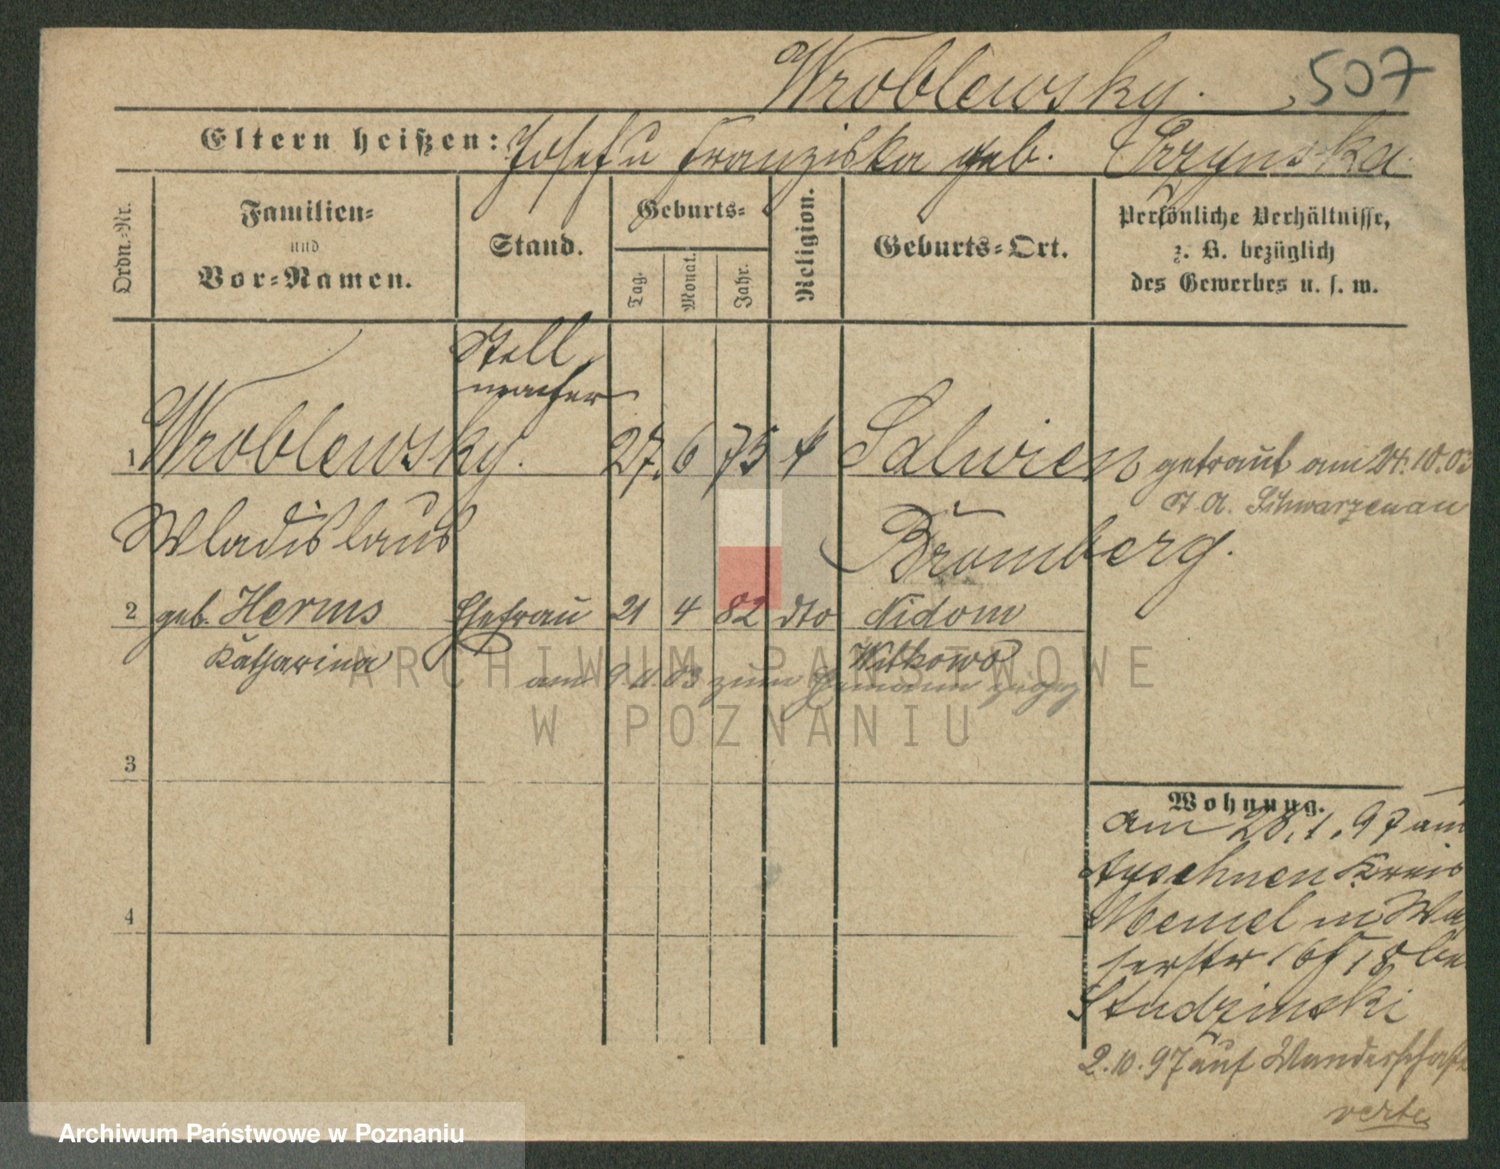 Wroblewsky. 507
Eltern heißen: Josef u Franziska geb.
Ordn.-Nr.
Familien- und Vor-Namen.
Stand.
Geburts-
Tag. Monat. Jahr.
Religion.
Geburts-Ort.
Persönliche Verhältnisse,
z. B. bezüglich
des Gewerbes u. s. w.
Stell
macher
1 Wroblewsky. 27. 6 75 k Salwien getraut am 24.10.03
St. A. Schwarzenau
Wladislaus Bromberg.
2 geb. Herms Ehefrau 21 4 82 dto Nidom
Katharina Witkowo
am 9.11.03 zum Ehemann
3
4
Wohnung.
am 28.1.97 aus
Kreis
Memel in Wa
serstr 16 / 18 bei
Studzinski
2.10.97 auf Wanderschaft
verte
ARCHIWUM PAŃSTWOWE
W POZNANIU
Archiwum Państwowe w Poznaniu